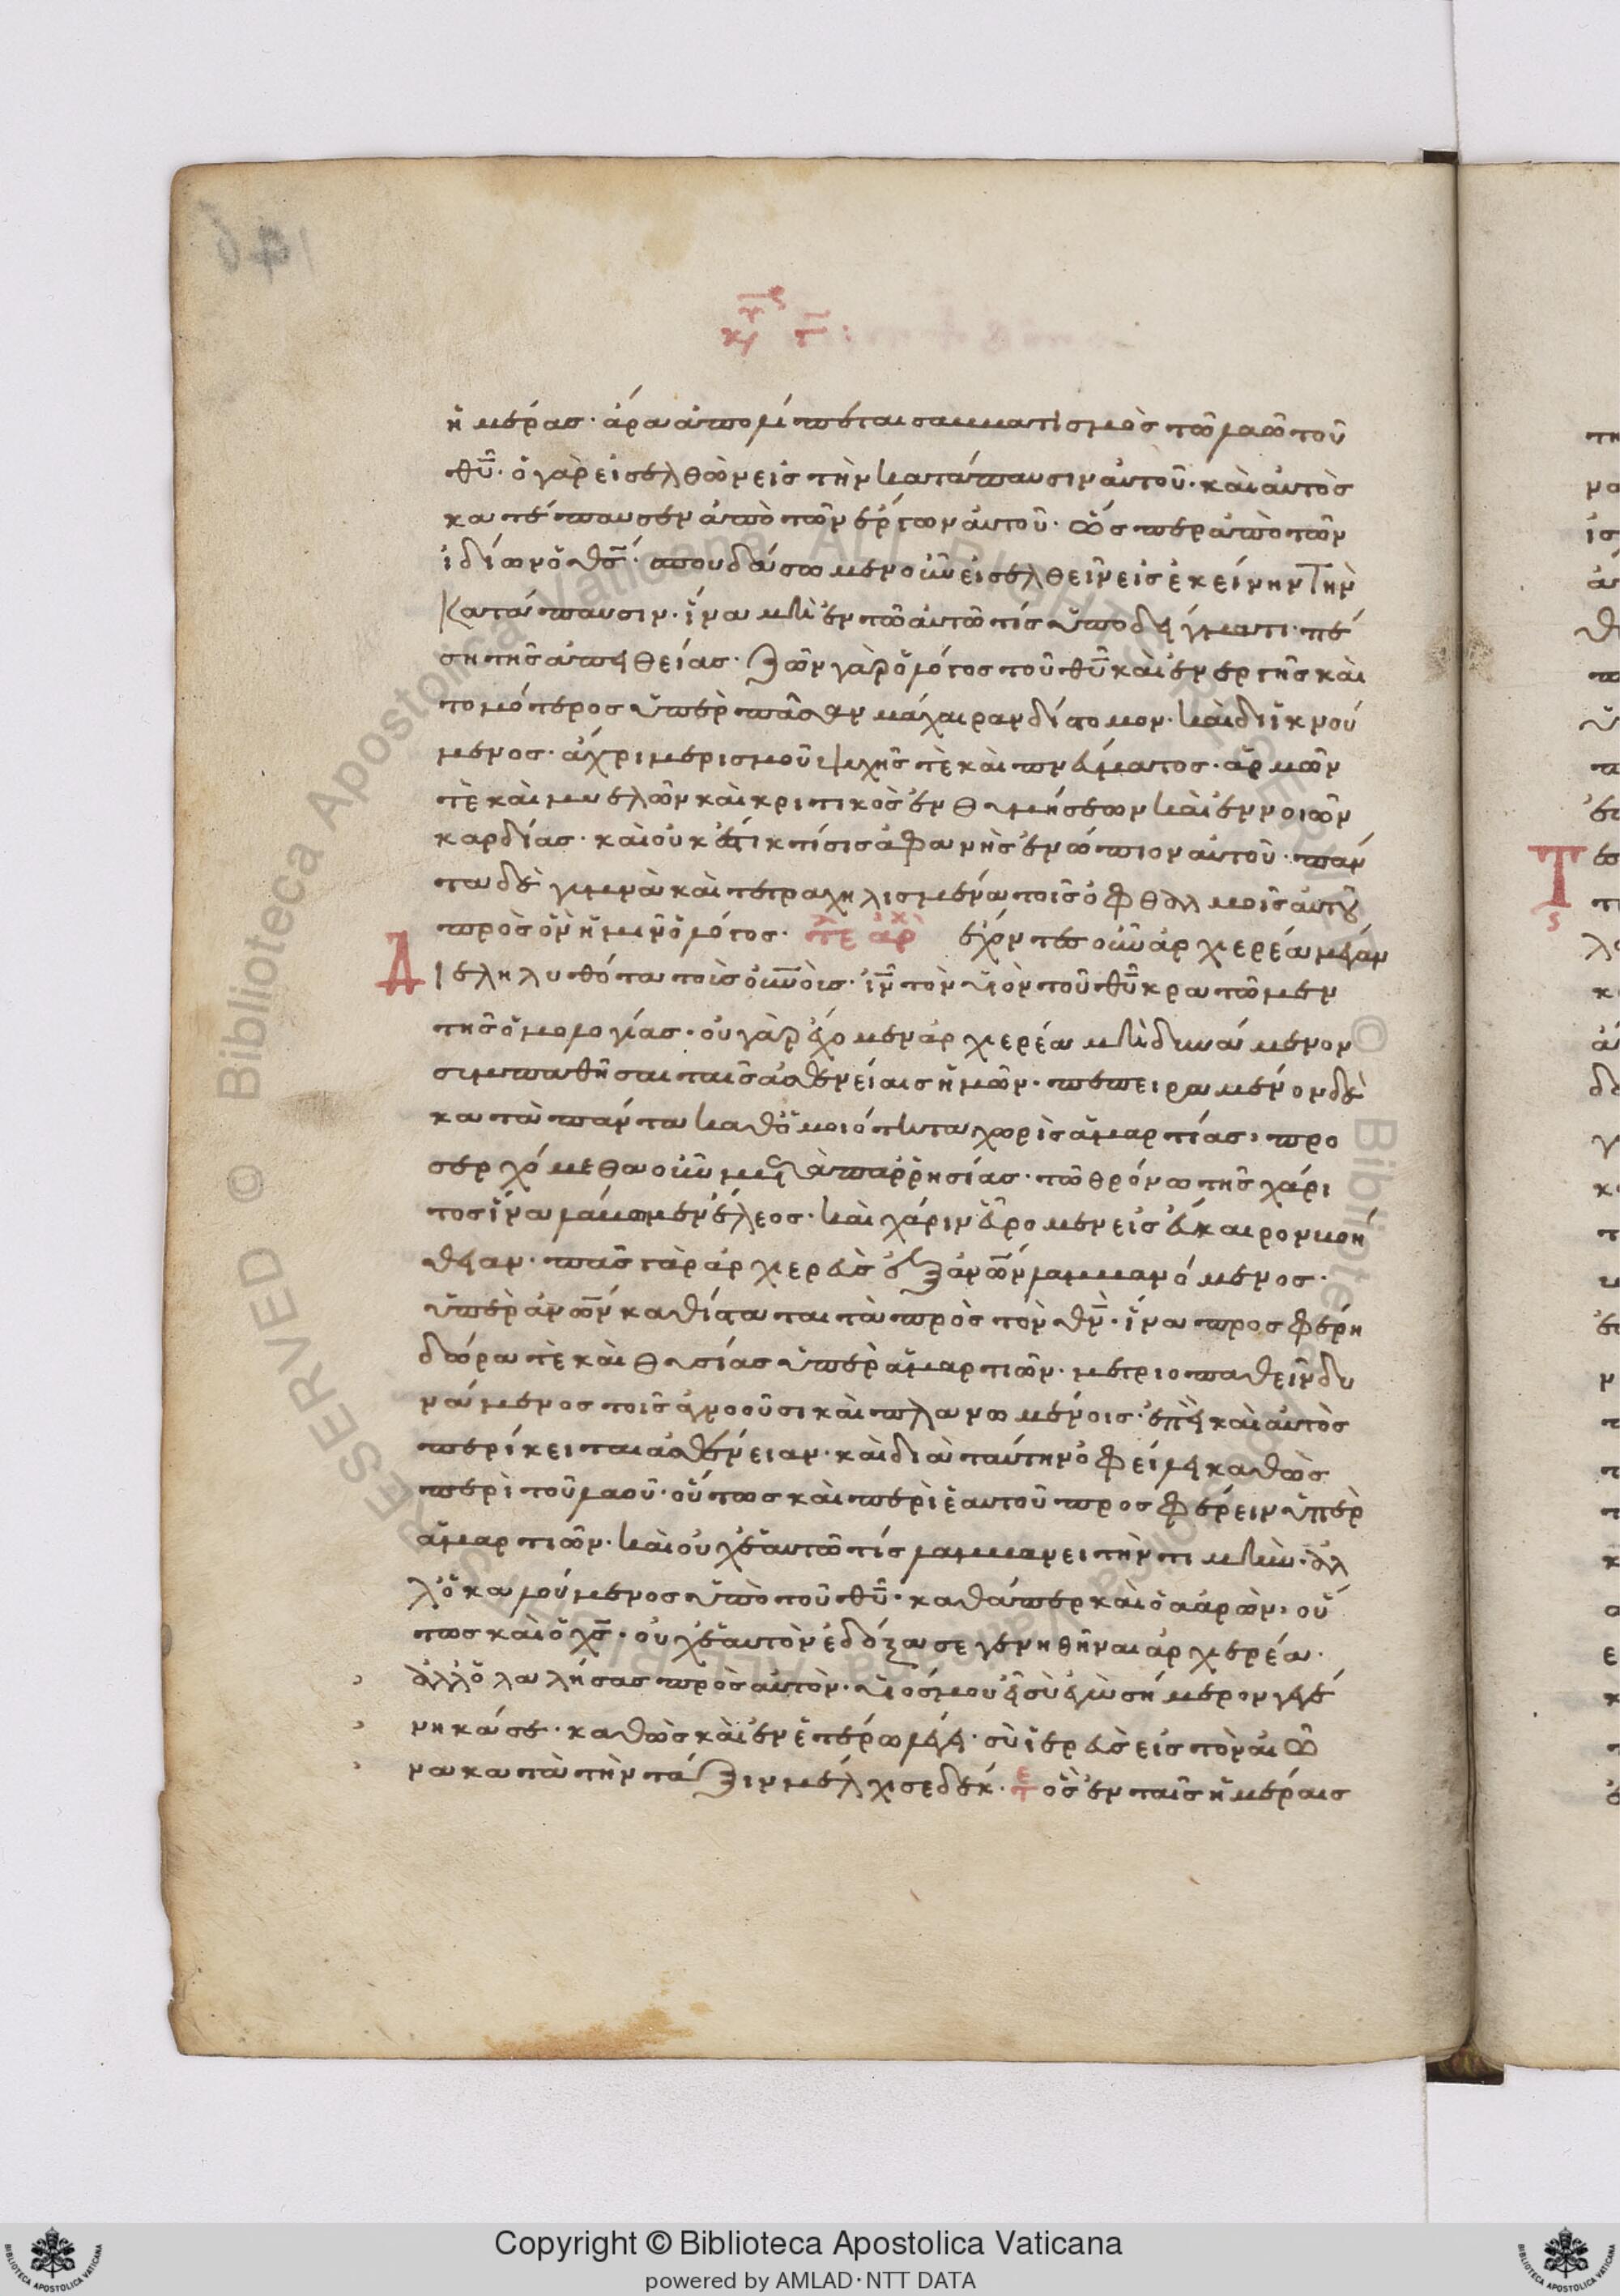 ἡμέρας· ἄρα ἀπολείπεται σαββατισμὸς τῶ λαῶ τοῦ
θυ̅· ὁ γὰρ εἰσελθὼν εἰς τὴν κατάπαυσιν αὐτοῦ· καὶ αὐτὸς
κατέπαυσεν ἀπὸ τῶν ἔργων αὐτοῦ· ὥσπερ ἀπὸ τῶν
ἰδίων ὁ θς̅· σπουδάσωμεν οὖν εἰσελθεῖν εἰς ἐκείνην τὴν
κατάπαυσιν· ἵνα μὴ ἐν τῶ αὐτῶ τίς ὑποδείγματι πέ
ση τῆς ἀπειθείας· ζῶν γὰρ ὁ λόγος τοῦ θυ̅ καὶ ἐνεργὴς καὶ
τομώτερος ὑπὲρ πᾶσαν μάχαιραν δίστομον· καὶ διϊκνού
μενος· ἄχρι μερισμοῦ ψυχῆς τὲ καὶ πνεύματος· ἁρμῶν
τὲ καὶ μυελῶν καὶ κριτικὸς ἐνθυμήσεων καὶ ἐννοιῶν
καρδίας· καὶ οὐκ ἔστι κτίσις ἀφανὴς ἐνώπιον αὐτοῦ· πάν
τα δὲ γυμνὰ καὶ τετραχηλισμένα τοῖς ὀφθαλμοῖς αὐτοῦ
πρὸς ὃν ἡμῖν ὁ λόγος· τε αρχ ἔχοντες οὖν ἀρχιερέα μέγαν
Δ
ιεληλυθότα τοὺς οὐνοὺς· ιν̅ τὸν υἱὸν τοῦ θυ̅ κρατῶμεν
τῆς ὁμολογίας· οὐ γὰρ ἔχομεν ἀρχιερέα μὴ δυνάμενον
συμπαθῆσαι ταῖς ἀσθενείαις ἡμῶν· πεπειραμένον δὲ
κατὰ πάντα καθ' ὁμοιότητα χωρὶς ἁμαρτίας· προ
σερχόμεθα οὖν μετὰ παρρησίας· τῶ θρόνω τῆς χάρι
τος ἵνα λάβωμεν ἔλεος· καὶ χάριν εὕρομεν εἰς εὔκαιρον βοή
θειαν· πᾶς γὰρ ἀρχιερεὺς ἐξ ανω̅ν λαμβανόμενος·
ὑπὲρ ανω̅ν καθίσταται τὰ πρὸς τὸν θν̅· ἵνα προσφέρη
δῶρα τὲ καὶ θυσίας ὑπὲρ ἁμαρτιῶν· μετριοπαθεῖν δυ
νάμενος τοῖς ἀγνοοῦσι καὶ πλανωμένοις· ἐπεὶ καὶ αὐτὸς
περίκειται ἀσθένειαν· καὶ διὰ ταύτην ὀφείλει καθὼς
περὶ τοῦ λαοῦ· οὕτως καὶ περὶ ἑαυτοῦ προσφέρειν ὑπὲρ
ἁμαρτιῶν· καὶ οὐχ ἑαυτῶ τίς λαμβάνει τὴν τιμὴν· ἀλ
λ' ὁ καλούμενος ὑπὸ τοῦ θυ̅· καθάπερ καὶ ὁ ἀαρὼν· οὕ
τως καὶ ὁ χς̅· οὐχ ἑαυτὸν ἐδόξασε γενηθῆναι ἀρχιερέα·
ἀλλ' ὁ λαλήσας πρὸς αὐτὸν· υἱός μου εἶ σὺ ἐγὼ σήμερον γεγέ
νηκά σε· καθὼς καὶ ἐν ἑτέρω λέγει· σὺ ἱερεὺς εἰς τὸν αἰῶ
να κατὰ τὴν τάξιν μελχισεδέκ· τε ὃς ἐν ταῖς ἡμέραις